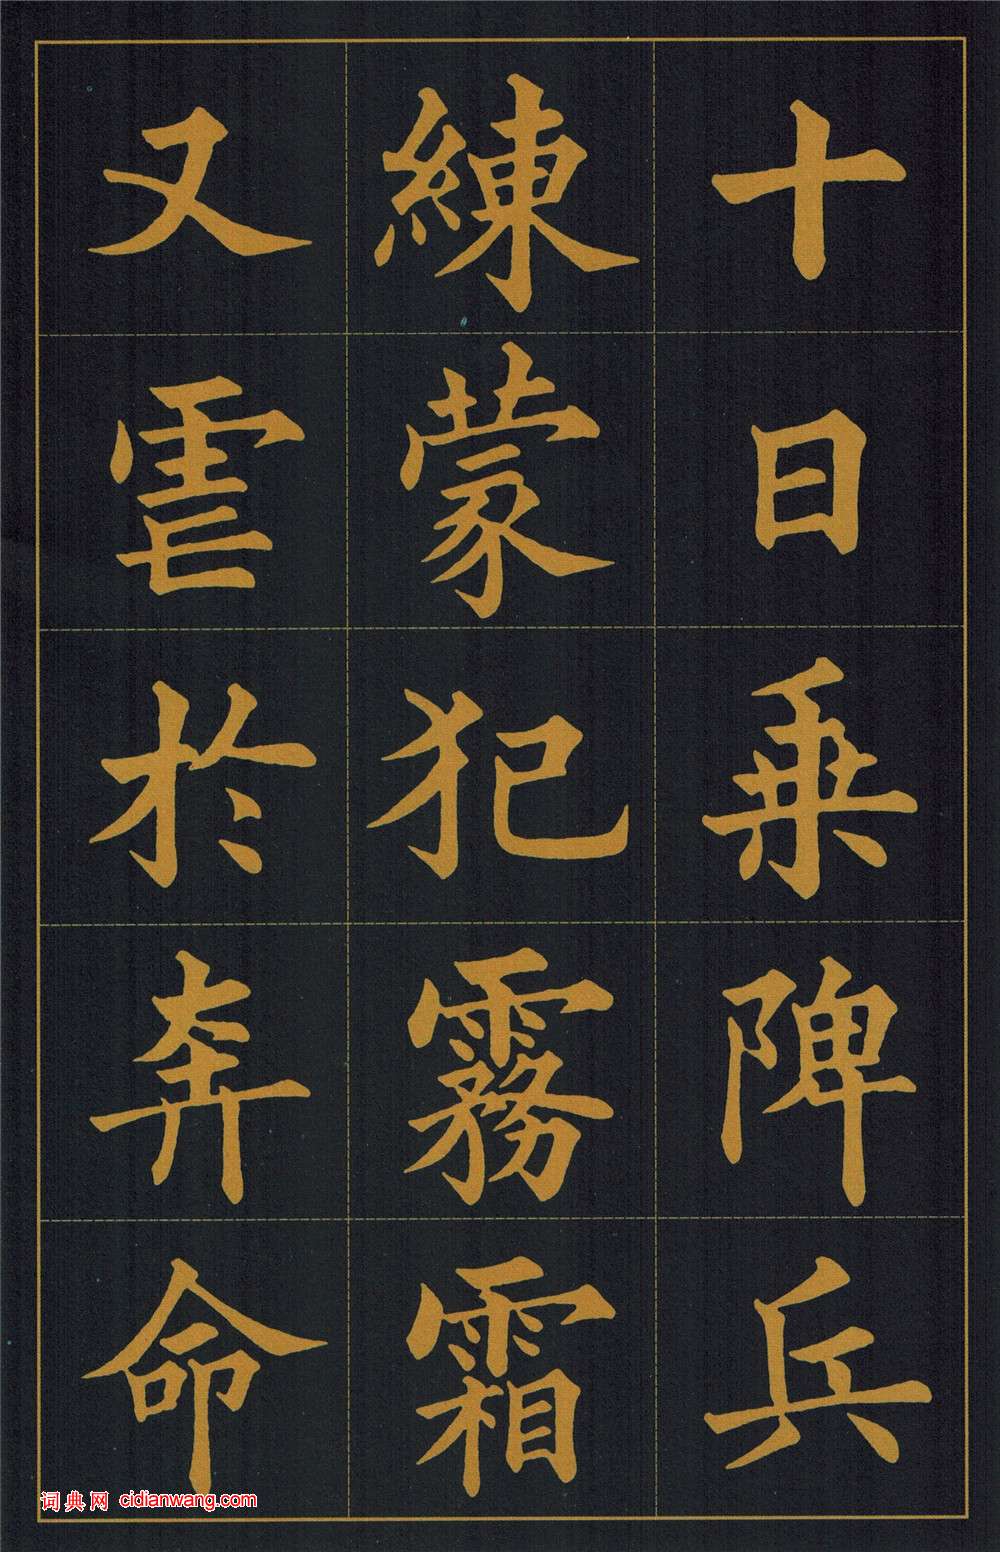 十日乗陴兵
練蒙犯霧霜
又雹於奔命
词典网 cidianwang.com